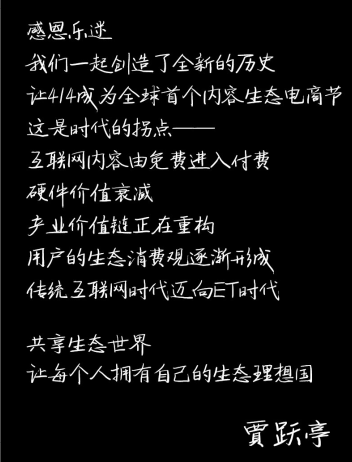 感恩乐迷
我们一起创造了全新的历史
让414成为全球首个内容生态电商节
这是时代的拐点——
互联网内容由免费进入付费
硬件价值衰减
产业价值链正在重构
用户的生态消费观逐渐形成
传统互联网时代迈向ET时代
共享生态世界
让每个人拥有自己的生态理想国
賈跃亭